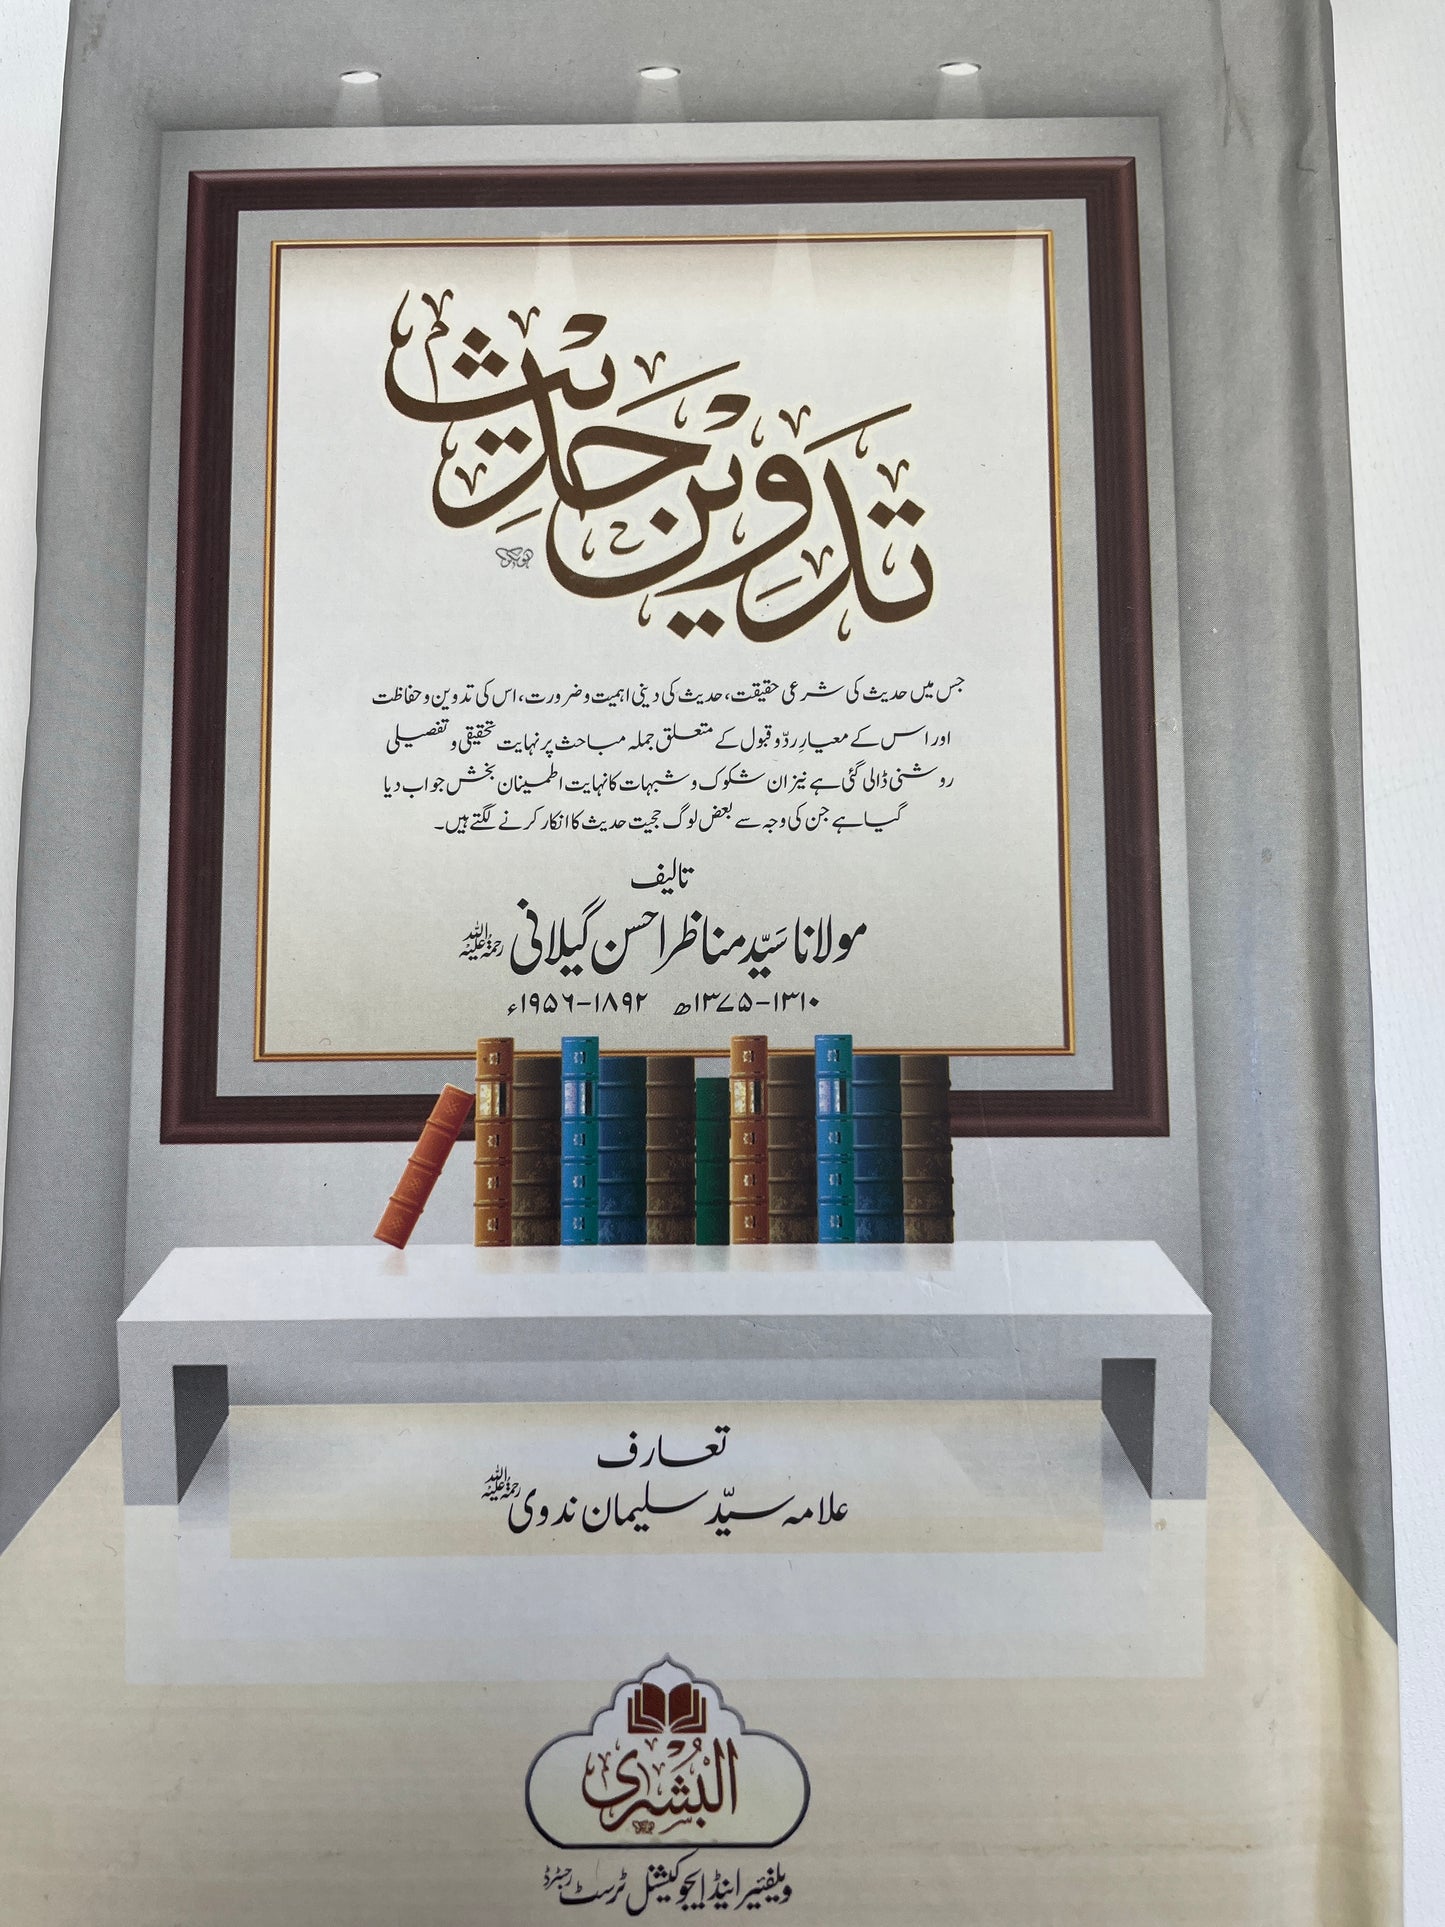 تدوین حدیث
جس میں حدیث کی شرعی حقیقت، حدیث کی دینی اہمیت و ضرورت، اس کی تدوین و حفاظت
اور اس کے معیارِ ردّ و قبول کے متعلق جملہ مباحث پر نہایت تحقیقی و تفصیلی
روشنی ڈالی گئی ہے نیز ان شکوک و شبہات کا نہایت اطمینان بخش جواب دیا
گیا ہے جن کی وجہ سے بعض لوگ حجیت حدیث کا انکار کرنے لگتے ہیں۔
تالیف
مولانا سَیّد مناظر احسن گیلانی رحمۃ اللہ علیہ
۱۳۱۰-۱۳۷۵ھ ۱۸۹۲-۱۹۵۶ء
تعارف
علامہ سیّد سلیمان ندوی رحمۃ اللہ علیہ
البُشریٰ
ویلفئیر اینڈ ایجوکیشنل ٹرسٹ رجسٹرڈ